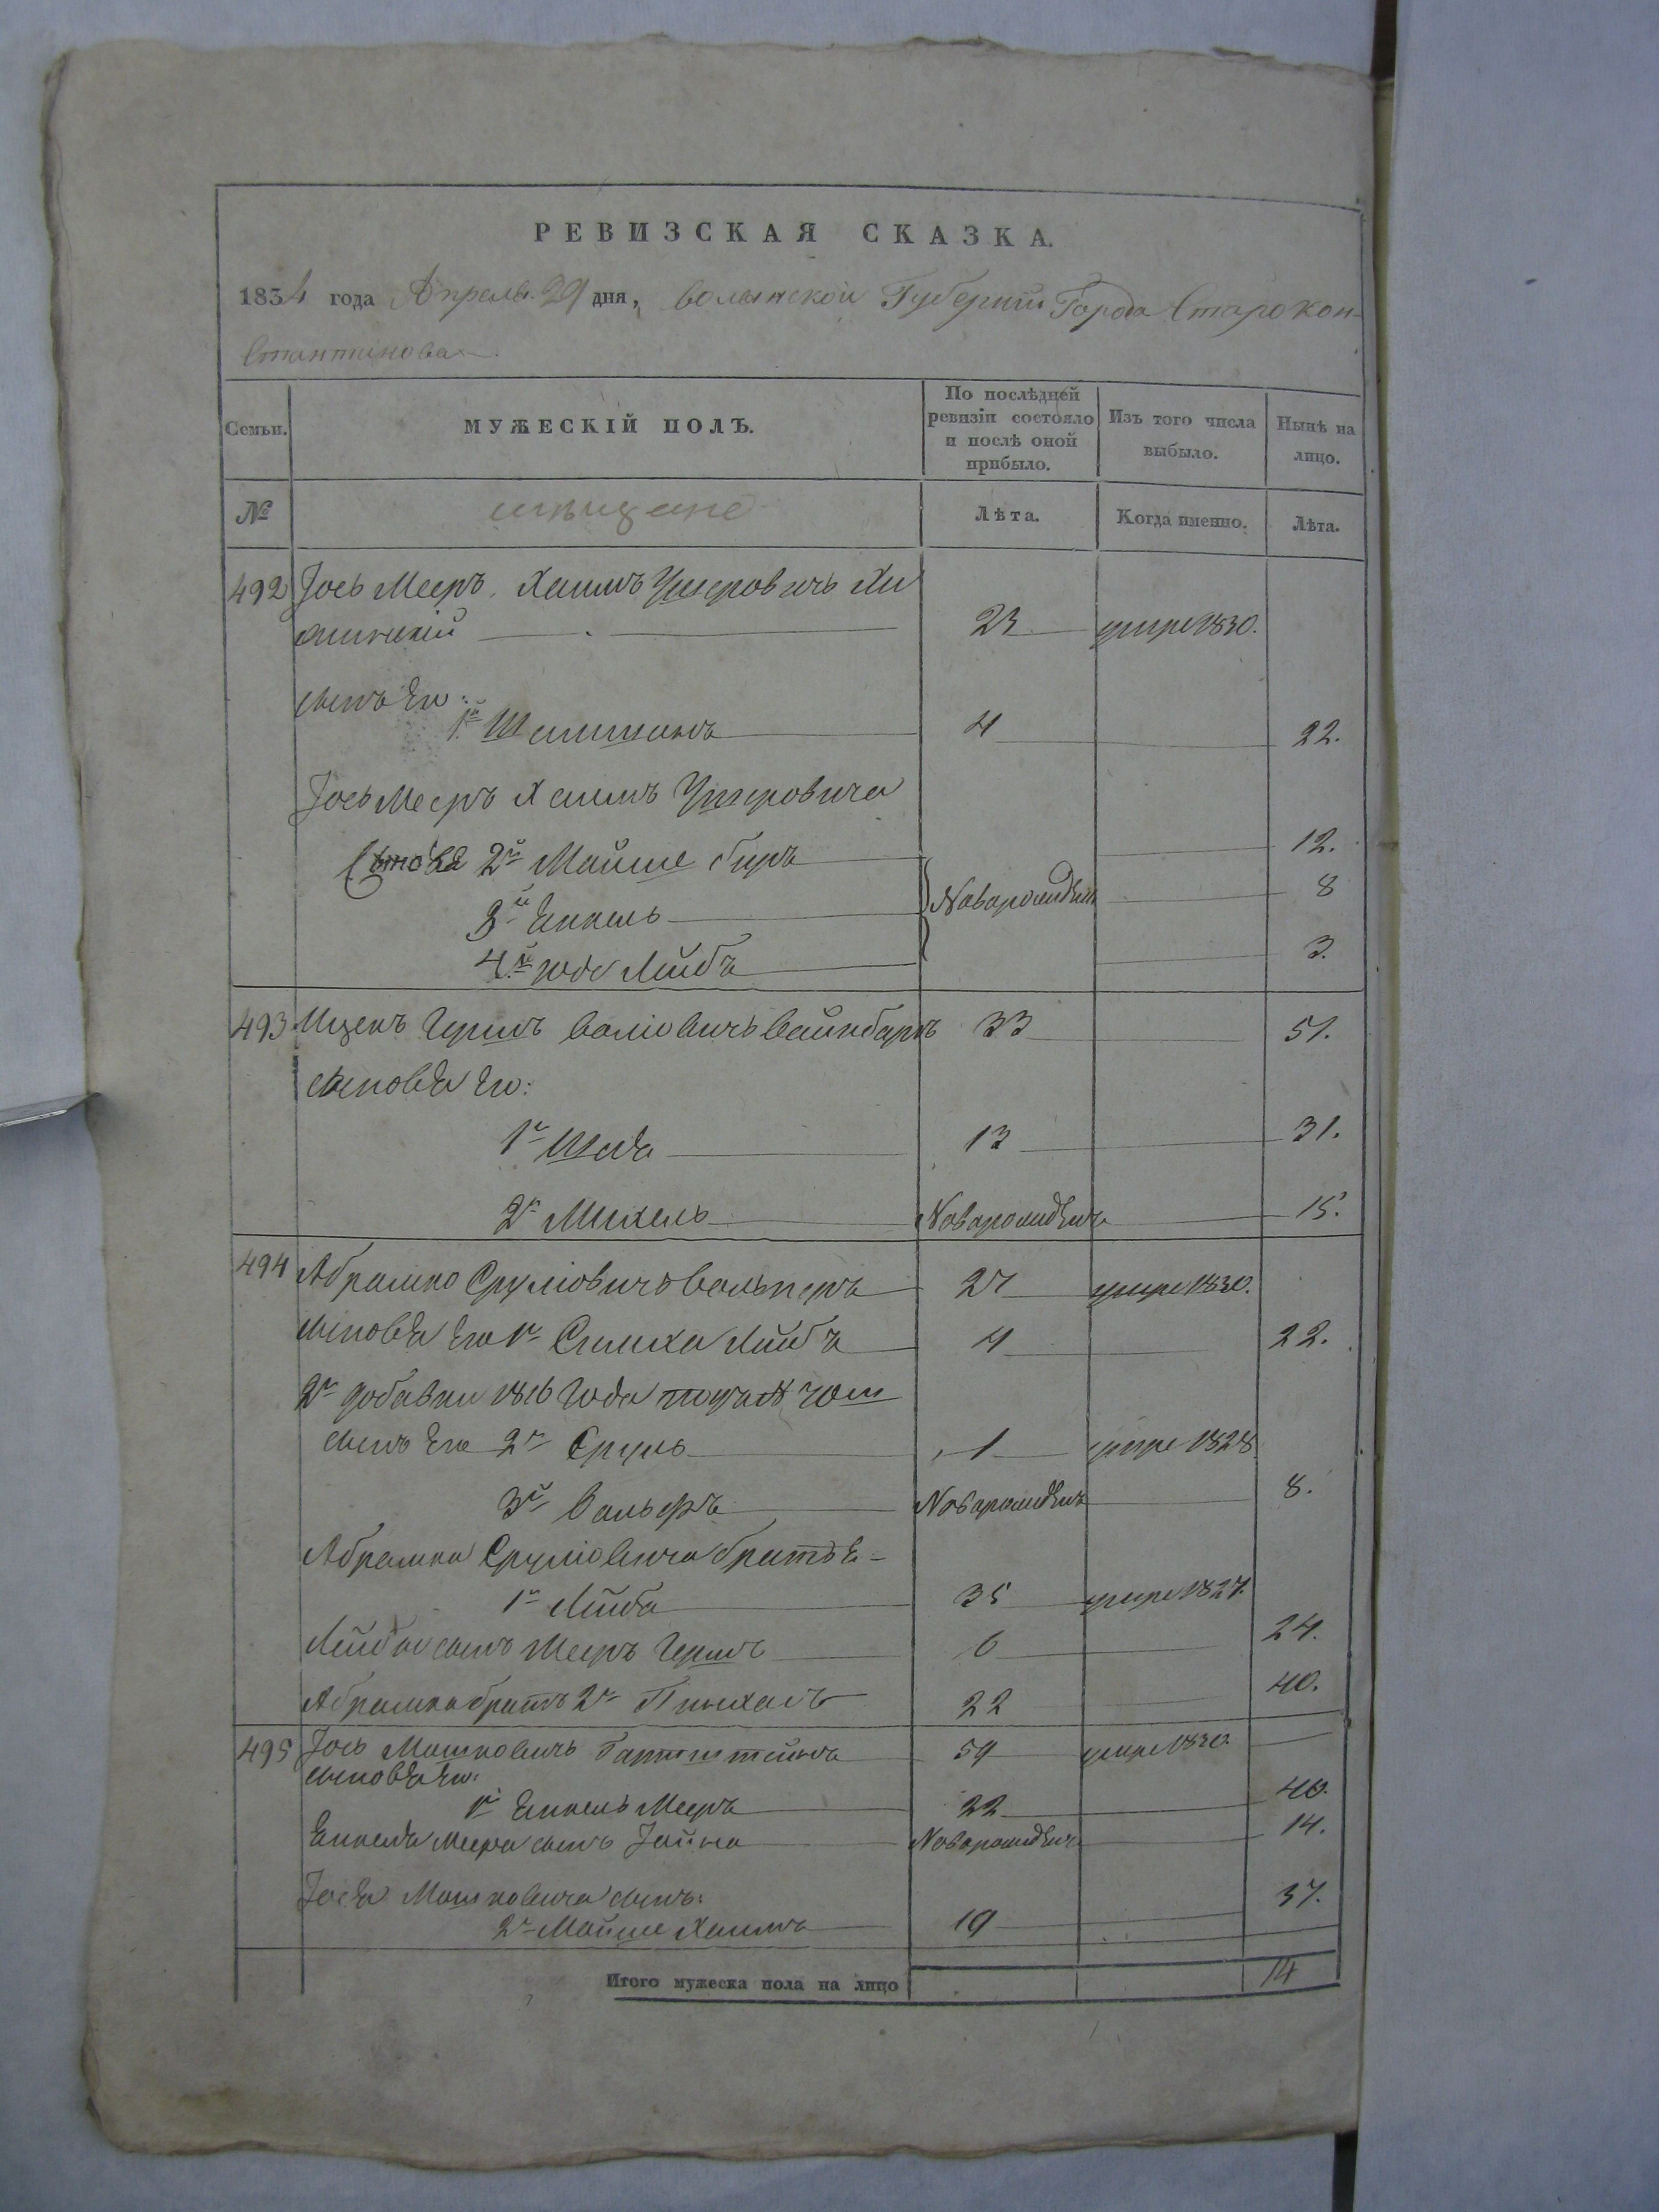 РЕВИЗСКАЯ СКАЗКА.
1834 года Апреля 29 дня, волынской Губернии Города Старокон-
стантинова
Семьи. МУЖЕСКІЙ ПОЛЪ. По послѣдней ревизіи состояло и послѣ оной прибыло. Изъ того числа выбыло. Нынѣ на лицо.
№ мѣщане Лѣта. Когда именно. Лѣта.
492 Іось Мееръ Хаимъ Ушеровичъ
23 умре 1830.
сынъ Его:
1й 4 22.
Іось Мееръ Хаимъ Ушеровича
сыновья 2й Мойше 12.
3й Янкель Новорожденъ 8
4й Юдо Лейбъ 3.
493 Ицекъ Гершъ Вайнбаргъ 33 51.
сыновья Его:
1й 13 31.
2й Михель Новорожденъ 15.
494 Абрамко Сруліовичъ 27 умре 1830.
сыновья Его 1й Симха Лейбъ 4 22.
2й добавки 1816 Года подъ №
сынъ Его 2й Сруль 1 умре 1828
3й Вольфъ Новорожденъ 8.
Абрамка Сруліовича братья
1й Лейба 35 умре 1827.
Лейбы сынъ Мееръ Гершъ 6 24.
Абрамка братъ 2й Пинхасъ 22 40.
495 Іось Мошковичъ Гартштейнъ 59 умре 1830.
сыновья Его:
1й Янкель Мееръ 22 40.
Янкеля Меера сынъ Іойна Новорожденъ 14.
Іося Мошковича сынъ:
2й Мойше Хаимъ 19 37.
Итого мужеска пола на лицо 14